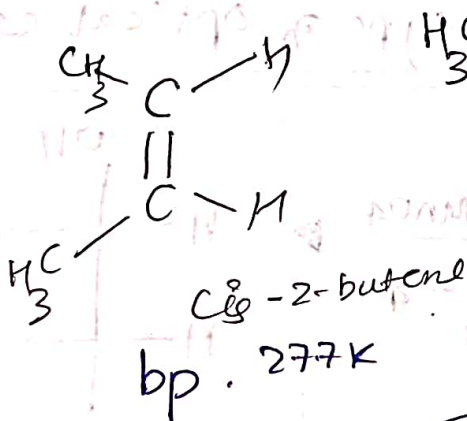 CH3 C H
H3
C H
H3C
Cis-2-butene
bp. 277K